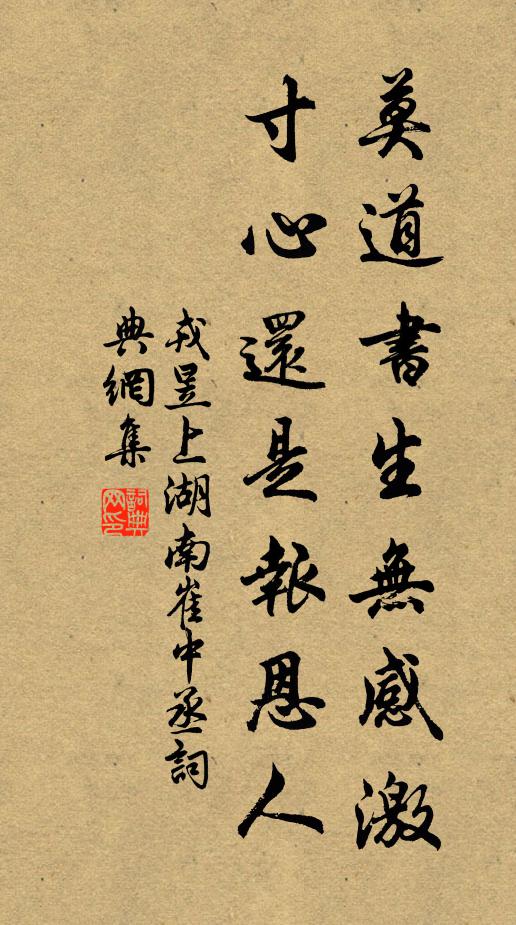 莫道書生無感激
寸心還是報恩人
戎昱上湖南崔中丞詞
典網集
詞典網印